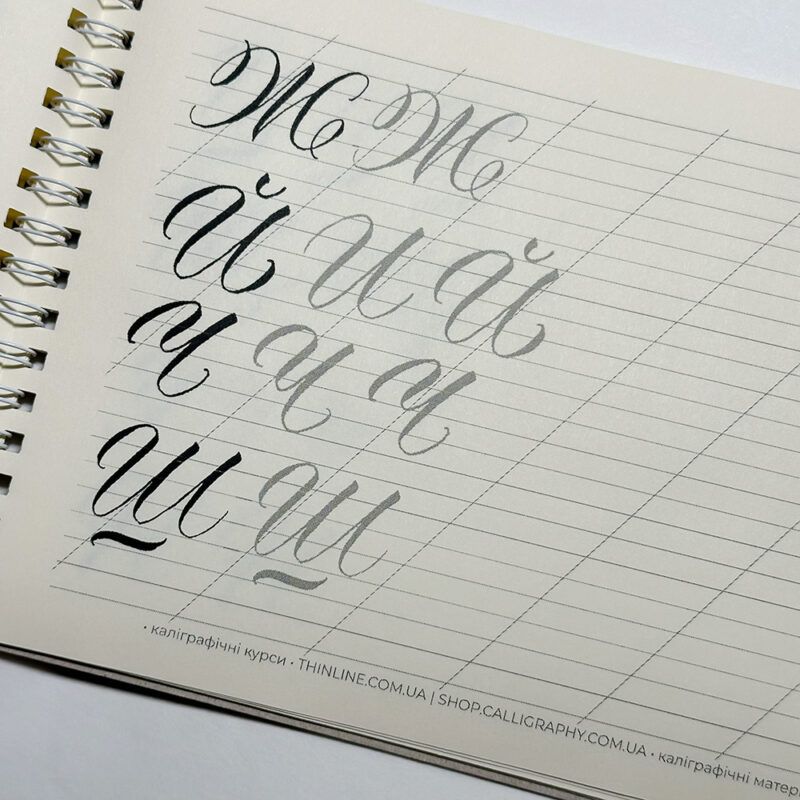 Ж Ж
Й И Й
Ч Ч Ч
Ш Ш
· каліграфічні курси · THINLINE.COM.UA | SHOP.CALLIGRAPHY.COM.UA · каліграфічні матері